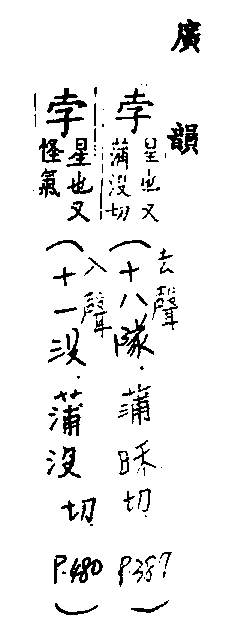 廣韻
孛 星也又蒲沒切 (去聲十八隊．蒲昧切．P.387)
孛 星也又怪氣 (入聲十一沒．蒲沒切．P.480)